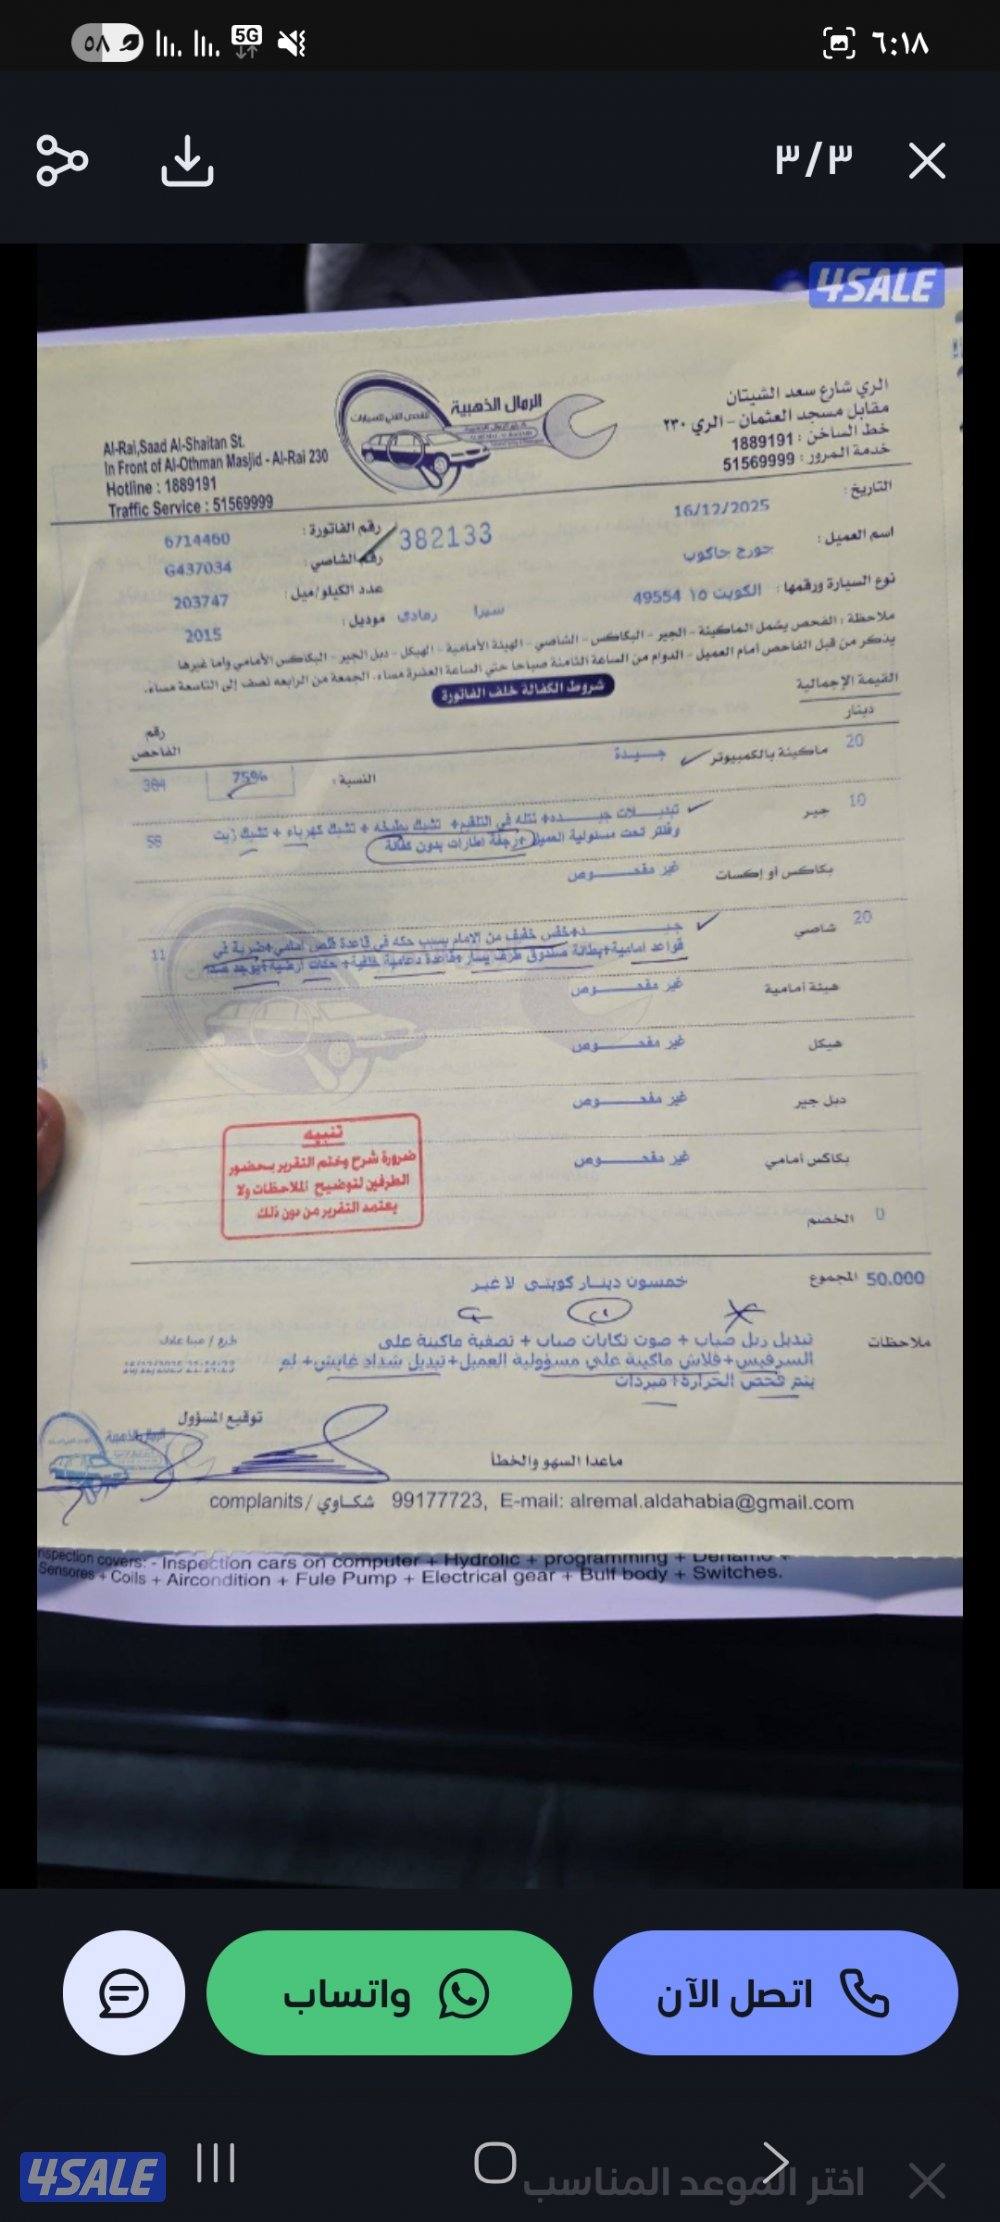 ٥٨
5G
٦:١٨
٣/٣
4SALE
الري شارع سعد الشيتان
مقابل مسجد العثمان - الري ٢٣٠
خط الساخن : 1889191
خدمة المرور : 51569999
الرمال الذهبية
للفحص الفني للسيارات
Al-Rai,Saad Al-Shaitan St.
In Front of Al-Othman Masjid - Al-Rai 230
Hotline : 1889191
Traffic Service : 51569999
التاريخ : 16/12/2025
382133
رقم الفاتورة : 6714460
اسم العميل : جورج جاكوب
رقم الشاصي : G437034
نوع السيارة ورقمها : الكويت ١٥ 49554
عدد الكيلو/ميل : 203747
سيرا رمادى
موديل : 2015
ملاحظة : الفحص يشمل الماكينة - الجير - البكاكس - الشاصي - الهيئة الأمامية - الهيكل - دبل الجير - البكاكس الأمامي وأما غيرها
يذكر من قبل الفاحص أمام العميل - الدوام من الساعة الثامنة صباحا حتى الساعة العشرة مساء، الجمعة من الرابعه نصف إلى التاسعة مساء.
شروط الكفالة خلف الفاتورة
القيمة الإجمالية
دينار
رقم
الفاحص
20 ماكينة بالكمبيوتر جــيــدة
النسبة : 75% 384
10 جير تبديــــلات جيـــــده+ نتله في التلقيم+ تشيك بطيخه + تشيك كهرباء + تشيك زيت
وفلتر تحت مسئولية العميل +رجفة اطارات بدون كفالة 58
بكاكس أو إكسات غير مفحــــوص
20 شاصي جيــــــد+خفس خفيف من الإمام بسبب حكه في قاعدة قفص امامي+ضربة في
قواعد امامية+بطانة صندوق طرف يسار+قاعدة دعامية خلفية+ حكات ارضية+يوجد صدا 11
هيئة أمامية غير مفحــــوص
هيكل غير مفحــــوص
دبل جير غير مفحــــوص
بكاكس أمامي غير مفحــــوص
تنبيه
ضرورة شرح وختم التقرير بحضور
الطرفين لتوضيح الملاحظات ولا
يعتمد التقرير من دون ذلك
الخصم 0
50.000 المجموع خمسون دينــار كويتى لا غير
ملاحظات تبديل ربل ضباب + صوت تكايات صباب + تصفية ماكينة على
السرفيس+فلاش ماكينة علي مسؤولية العميل+تبديل شداد غايش+ لم
يتم فحص الحرارة+ مبردات
16/12/2025 21:14:23
توقيع المسؤول
ماعدا السهو والخطأ
complanits / شكــاوي 99177723, E-mail: alremal.aldahabia@gmail.com
nspection covers: - Inspection cars on computer + Hydrolic + programming + Denamo +
Sensores + Coils + Aircondition + Fule Pump + Electrical gear + Bulf body + Switches.
اتصل الآن
واتساب
اختر الموعد المناسب
4SALE